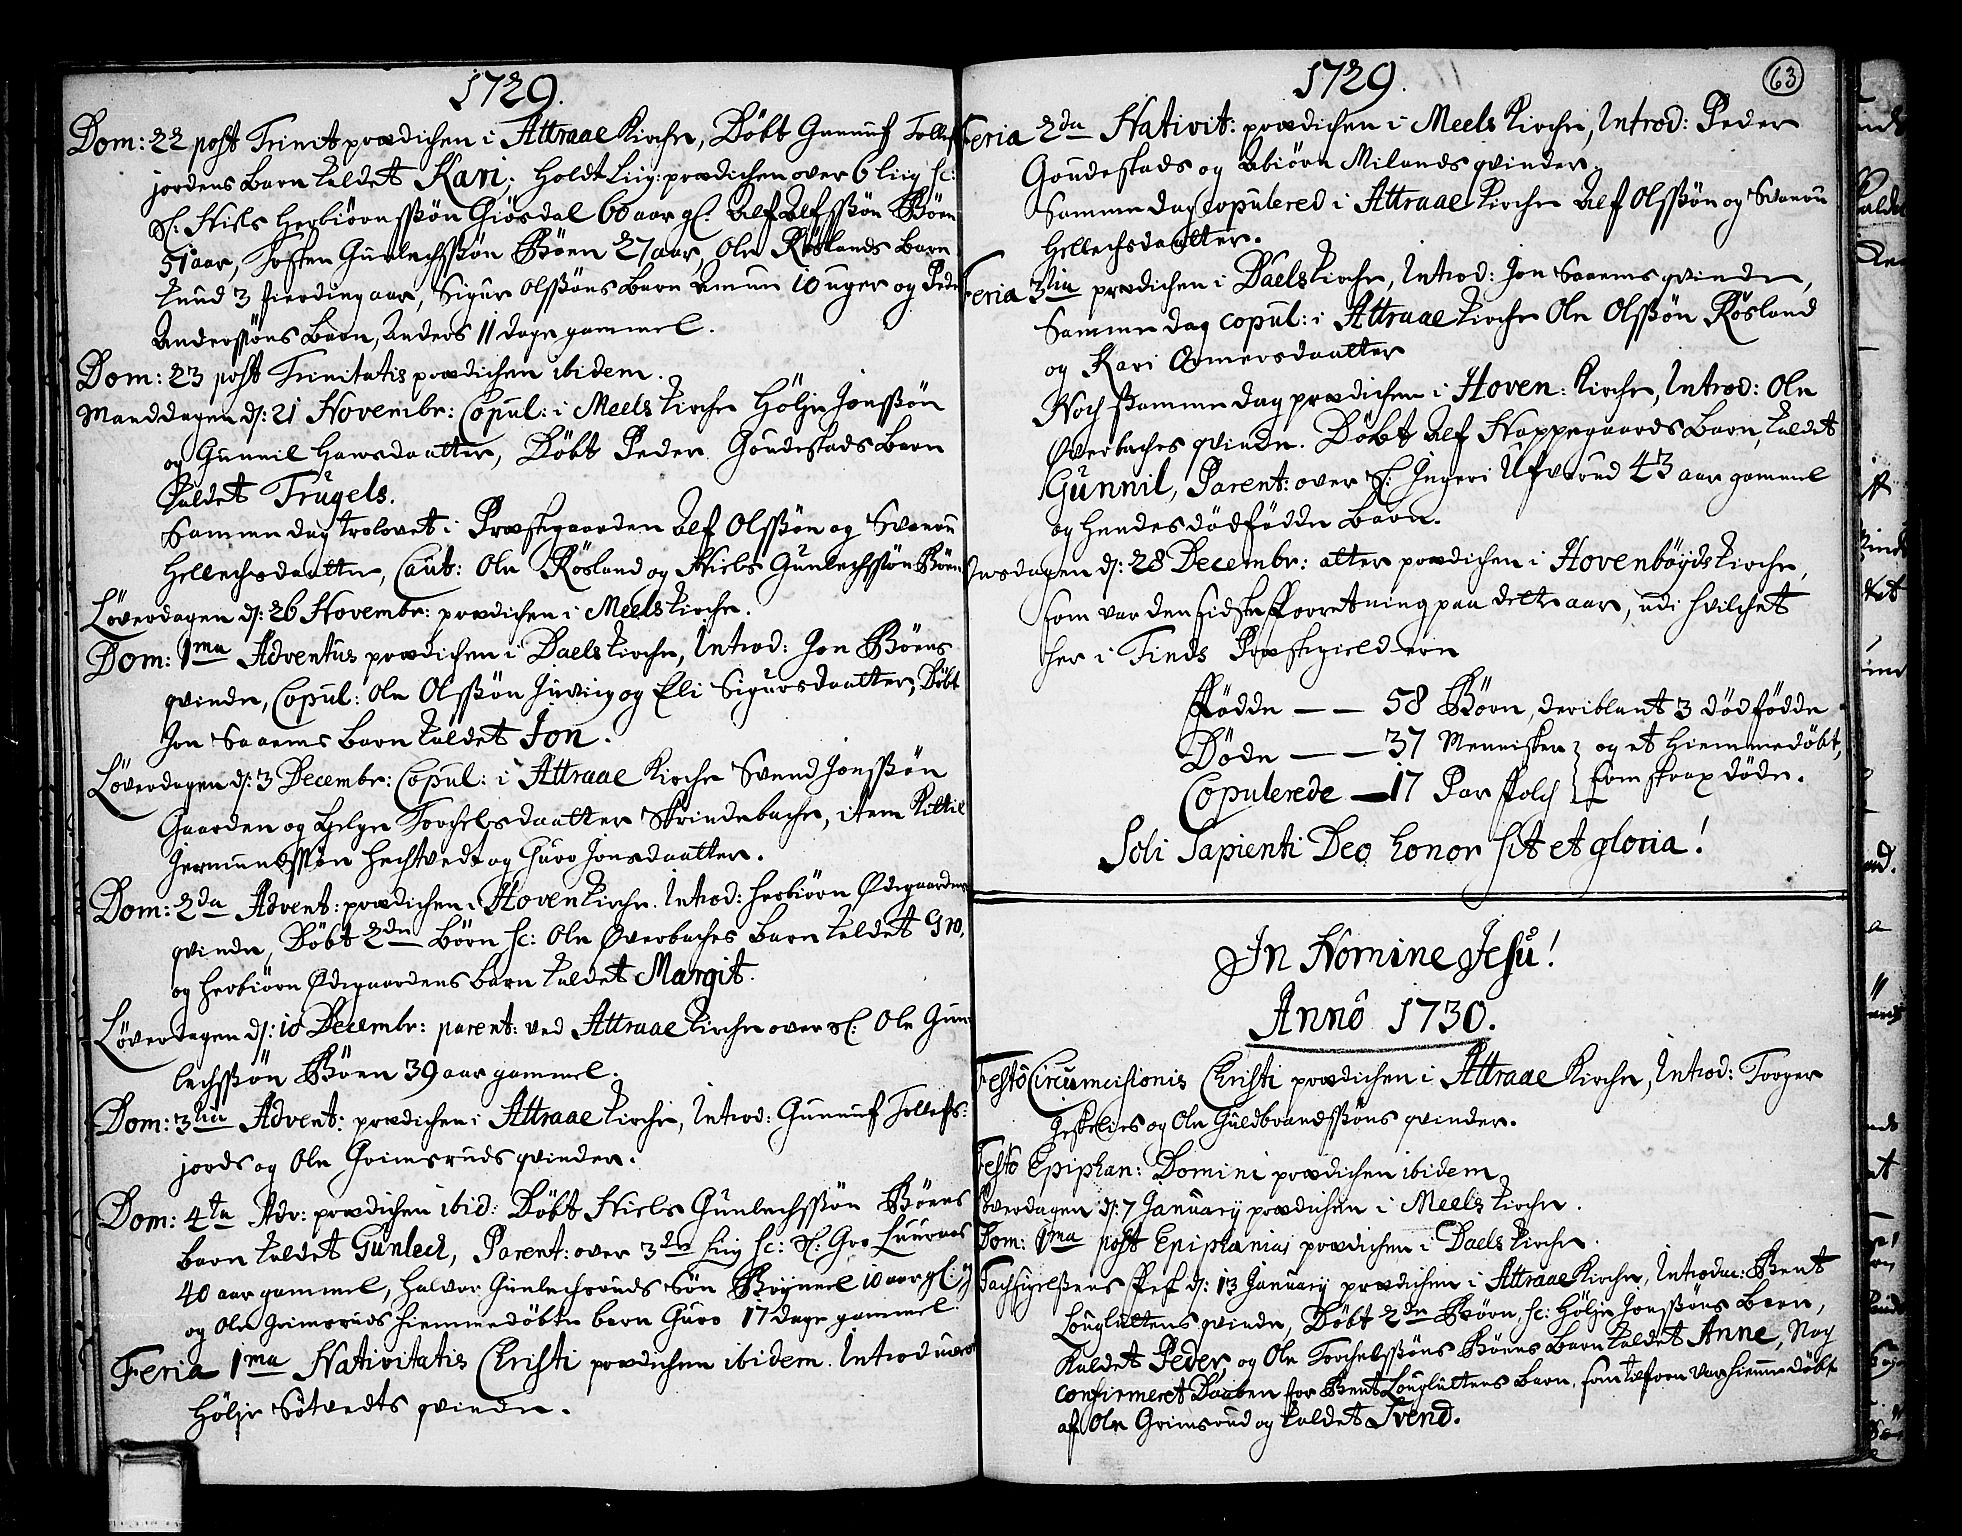 1729.
Dom: 22 post Trinit prædichen i Attraae Kirche, Döbt Gunnuf Tollefs
jordens Barn kaldet Kari; holdt Liig: prædichen over 6 Liig sc:
Sl. Niels Herbiörnssön Giösdal 60 aar gl. Alf Alfssön Böen
51 aar, Gunlechssön Böen 27 aar, Ole Röslands Barn
Knud 3 fierding aar, Sigur Olssöns Barn Amun 10 uger og Peder
Anderssöns Barn, Anders 11 dage gammel.
Dom: 23 post Trinitatis prædichen ibidem.
Manddagen d: 21 Novembr: Copul: i Meels Kirche Hölje Jonssön
og Gunnil Hansdaatter, Döbt Peder Goudestads Barn
kaldet Trugels.
Samme dag trolovet i Præstegaarden Alf Olssön og Svanou
Hellechsdaatter, Caut: Ole Rösland og Niels Gunlechssön Böen
Löverdagen d: 26 Novembr: prædichen i Meels Kirche.
Dom: 1ma Adventus prædichen i Daels Kirche, Introd: Jon Böens
qvinde, Copul: Ole Olssön Juvig og Eli Sigursdaatter, Döbt
Jon Saaems Barn kaldet Jon.
Löverdagen d: 3 Decembr: Copul: i Attraae Kirche Svend Jonssön
Gaarden og Helge Torchelsdaatter Skrindebache, item Kittil
Jermundssön Hechtvedt og Guro Jonsdaatter.
Dom: 2da Advent: prædichen i Hoven Kirche. Introd: Herbiörn Ødegaardens
qvinde, Döbt 2de Börn sc: Ole Øverbaches Barn kaldet Gro,
og Herbiörn Ødegaardens Barn kaldet Margit.
Löverdagen d: 10 Decembr: parent: ved Attraae Kirche over Sl. Ole Gun-
lechssön Böen 39 aar gammel.
Dom: 3tia Advent: prædichen i Attraae Kirche, Introd: Gunnuf Tollefs-
jords og Ole Grimsruds qvinder.
Dom: 4ta Adv: prædichen ibid: Döbt Niels Gunlechssön Böens
Barn kaldet Gunlech, Parent: over 3de Liig sc: Sl. Gro Luuraas
40 aar gammel, Halvor Gunlechsruds Sön Brynnel 10 aar gl. og
og Ole Grimsruds hiemmedöbte barn Guro 17 dage gammel.
Feria 1ma Nativitatis Christi prædichen ibidem. Introduceret
Hölje Sötvedts qvinde.
63
1729.
Feria 2da Nativit: prædichen i Meels Kirche, Introd: Peder
Goudestads og Abiörn Milands qvinder.
Samme dag copulered i Attraae Kirche Alf Olssön og Svanou
Hellechsdaatter.
Feria 3tia prædichen i Daels Kirche, Introd: Jon Saaems qvinde,
Samme dag copul: i Attraae Kirche Ole Olssön Rösland
og Kari Ormersdaatter
Noch samme dag prædichen i Hoven: Kirche, Introd: Ole
Øverbaches qvinde. Döbt Alf Kappegaards Barn, kaldet
Gunnil, Parent: over Sl. Ingeri Ufsrud 43 aar gammel
og hendes dödfödde Barn.
Onsdagen d: 28 Decembr: atter prædichen i Hovenböyds Kirche,
som var den sidste Forretning paa dette aar, udi hvilchet
her i Tinds Præstegield ere
Födde — — 58 Börn, deriblant 3 dödfödde
Döde — — 37 Mennisker og et hiemmedöbt,
Copulerede — 17 Par Folch som strax döde.
Soli Sapienti Deo honor sit et gloria!
In Nomine Jesu!
Annô 1730.
Festô Circumcisionis Christi prædichen i Attraae Kirche, Introd: Torger
og Ole Guldbrandssöns qvinder.
Festô Epiphan: Domini prædichen ibidem
Löverdagen d: 7 January prædichen i Meels Kirche.
Dom: 1ma post Epiphanias prædichen i Daels Kirche.
Tachsigelsens Fest d: 13 January prædichen i Attraae Kirche, Introduc: Bent
Louglottens qvinde, Döbt 2de Börn, sc: Hölje Jonssöns Barn,
kaldet Peder, og Ole Torchelssöns Böens Barn kaldet Anne, Noch
confirmeret Daaben for Bent Louglottens Barn, som tilforn var hiemmedöbt
af Ole Grimsrud og kaldet Svend.